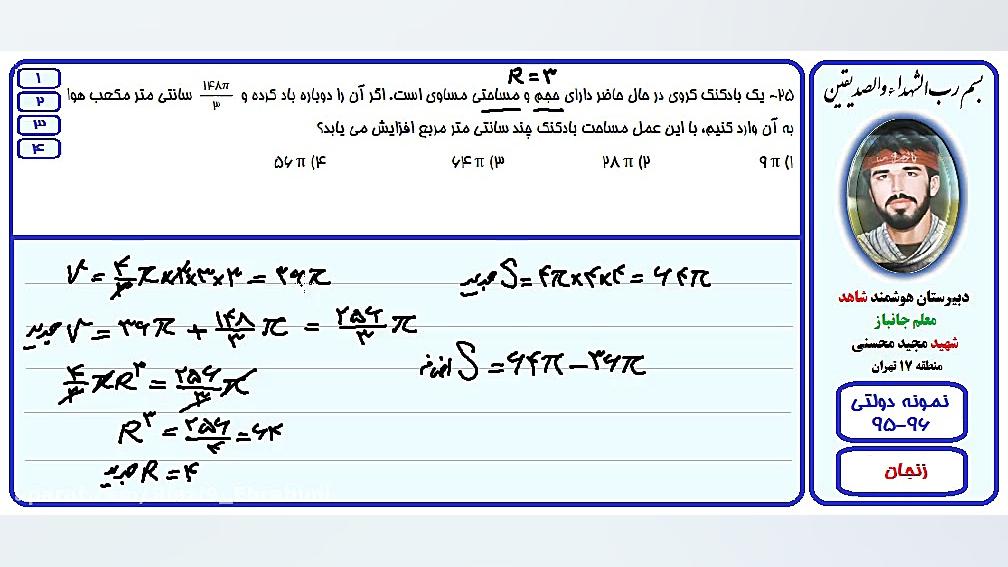 بسم رب الشهداء والصدیقین
دبیرستان هوشمند شاهد
معلم جانباز
شهید مجید محسنی
منطقه ۱۷ تهران
نمونه دولتی
۹۵-۹۶
زنجان
R = ۳
۲۵- یک بادکنک کروی در حال حاضر دارای حجم و مساحتی مساوی است. اگر آن را دوباره باد کرده و ۱۴۸π/۳ سانتی متر مکعب هوا
به آن وارد کنیم، با این عمل مساحت بادکنک چند سانتی متر مربع افزایش می یابد؟
۱) ۹π ۲) ۲۸π ۳) ۶۴π ۴) ۵۶π
۱
۲
۳
۴
V = ۴/۳ π×۳×۳×۳ = ۳۶π
جدید V = ۳۶π + ۱۴۸/۳ π = ۲۵۶/۳ π
۴/۳ πR³ = ۲۵۶/۳ π
R³ = ۲۵۶/۴ = ۶۴
جدید R = ۴
جدید S = ۴π×۴×۴ = ۶۴π
S = ۶۴π − ۳۶π